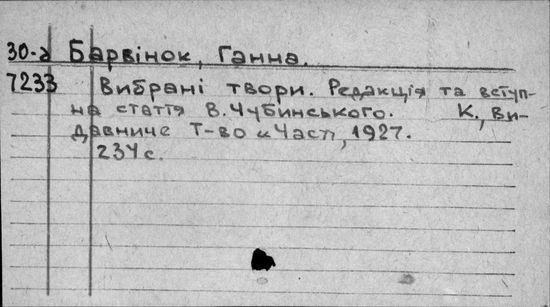 30-а Барвінок, Ганна.
7233 Вибрані твори. Редакція та вступ-
на стаття В. Чубинського. К., Ви-
давниче Т-во "Час", 1927.
234 с.